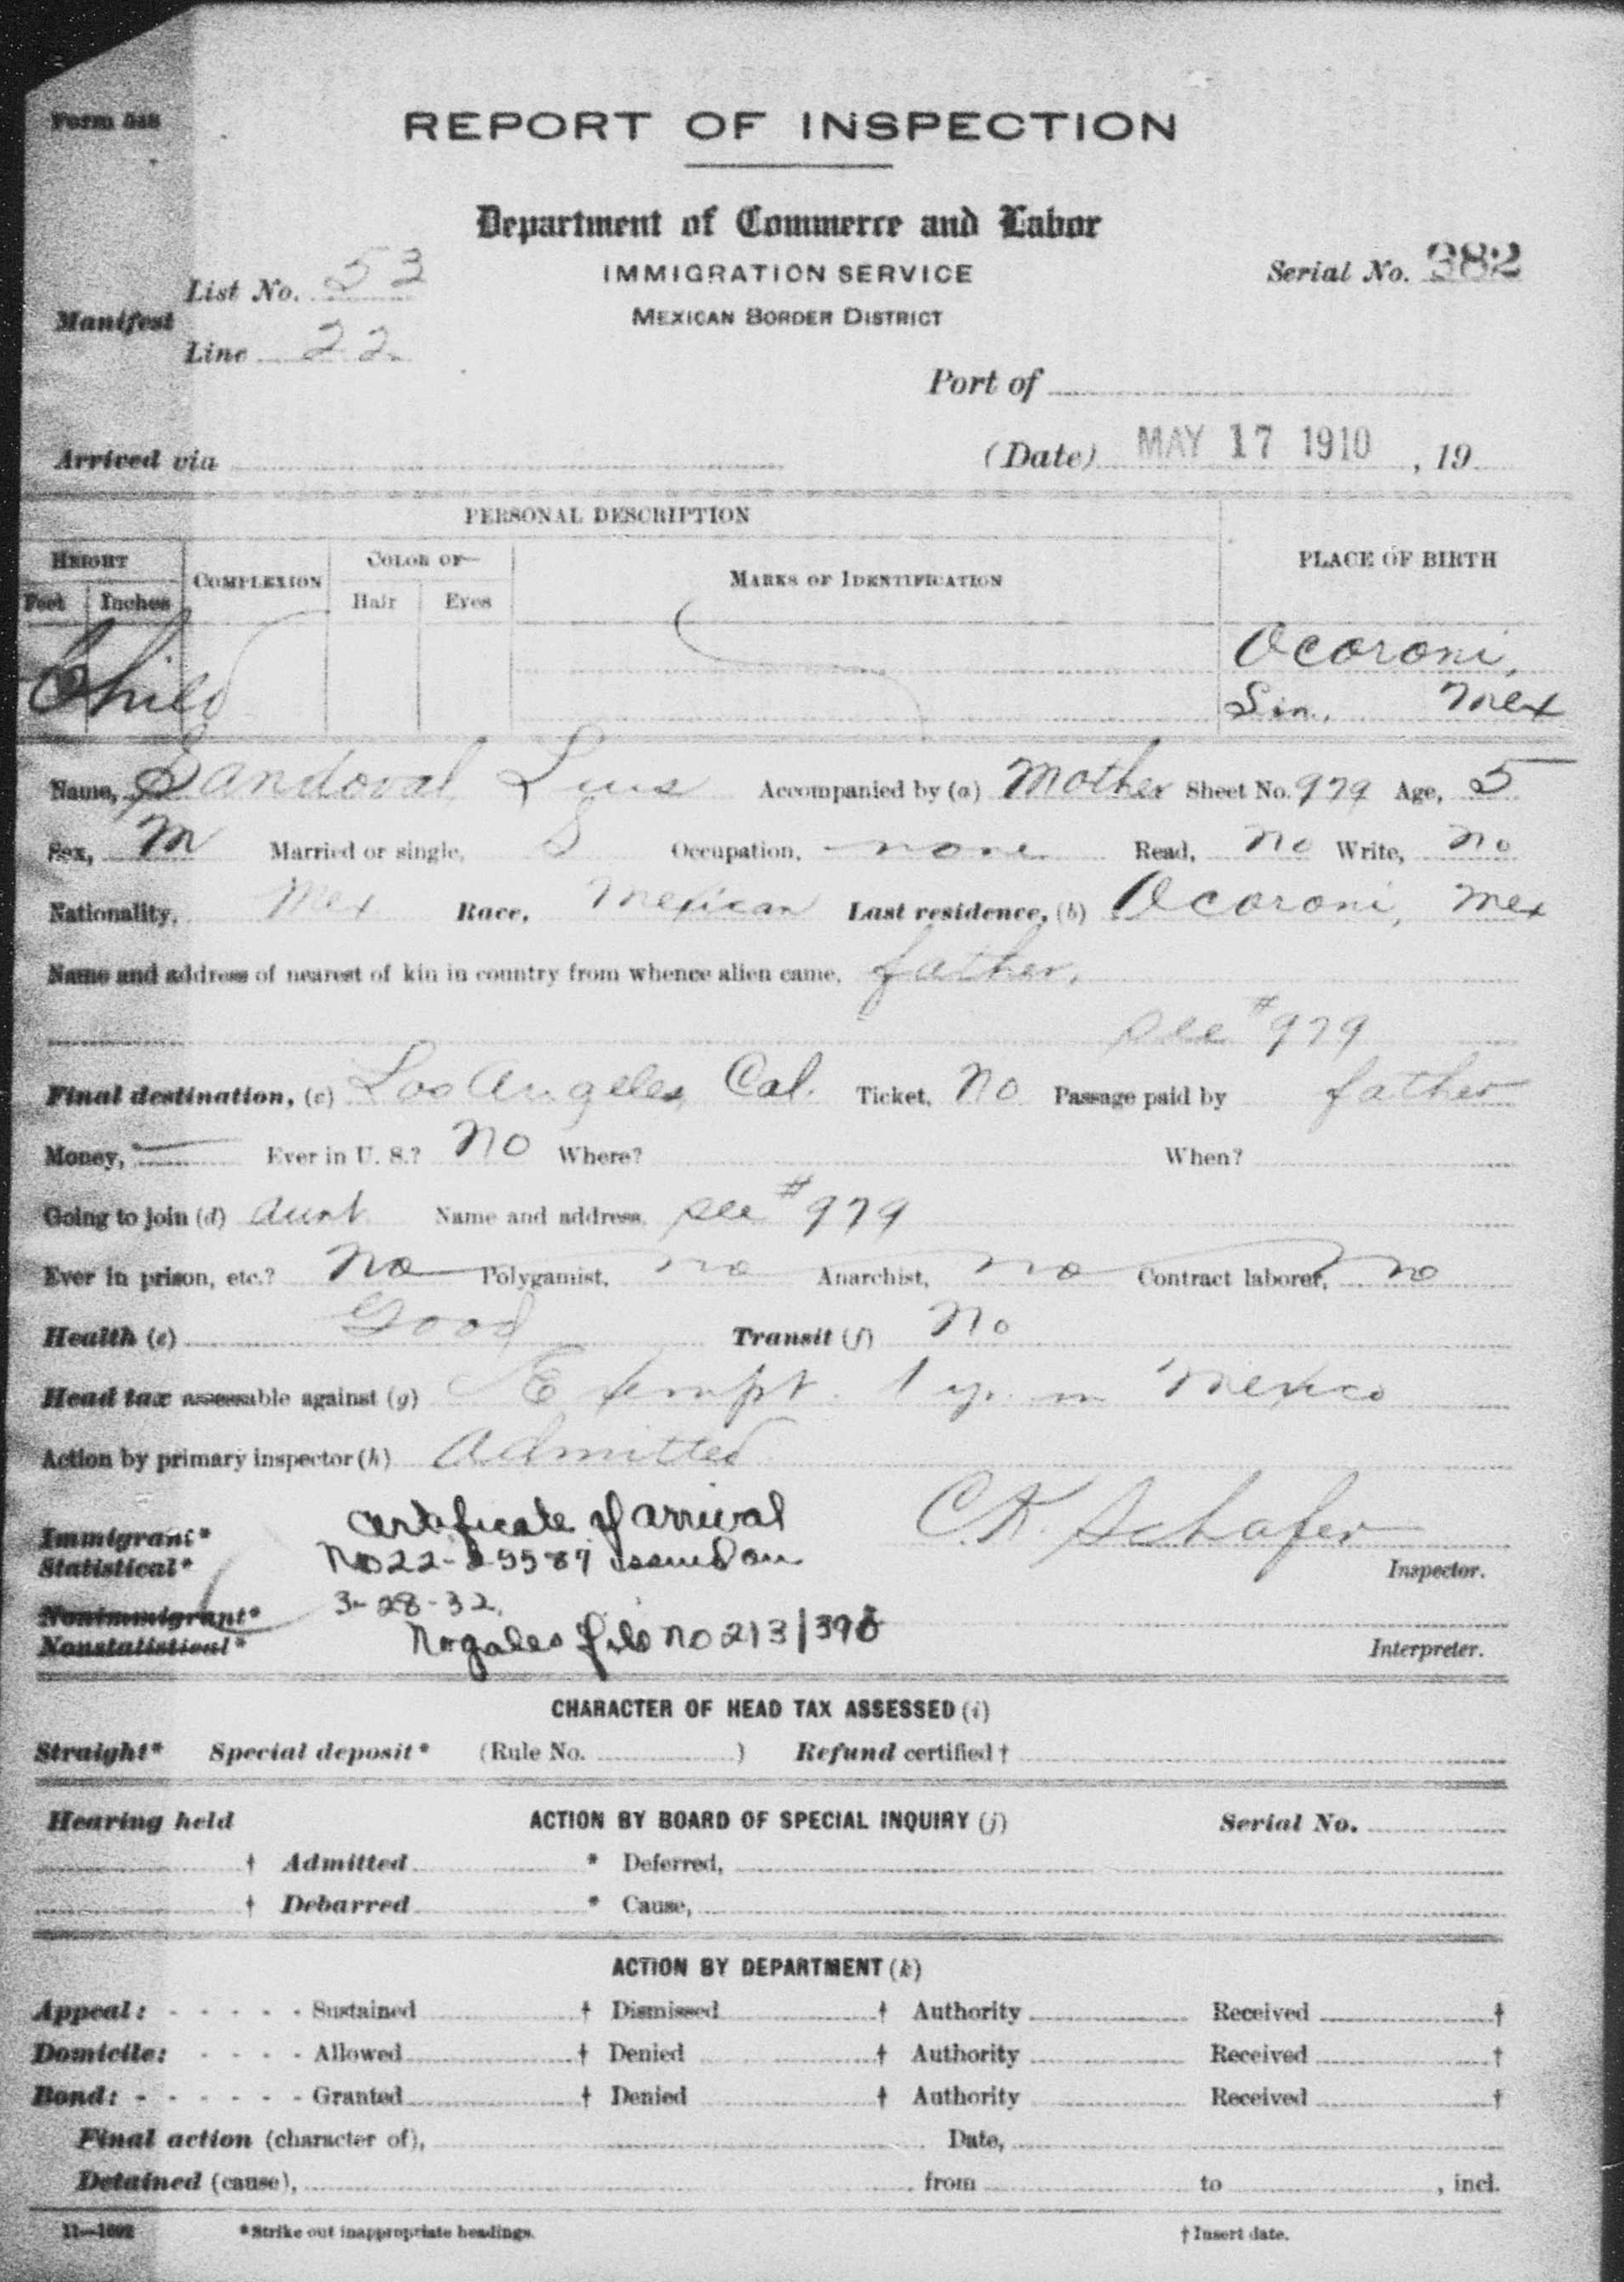 Form 548
REPORT OF INSPECTION
Department of Commerce and Labor
IMMIGRATION SERVICE
MEXICAN BORDER DISTRICT
Serial No. 982
Manifest
List No. 53
Line 22
Port of
Arrived via
(Date) MAY 17 1910, 19
PERSONAL DESCRIPTION
HEIGHT
Feet Inches
COMPLEXION
COLOR OF—
Hair Eyes
MARKS OF IDENTIFICATION
PLACE OF BIRTH
Child
Ocoroni,
Sin, Mex
Name, Sandoval Luis Accompanied by (a) Mother Sheet No. 979 Age, 5
Sex, M Married or single, S Occupation, none Read, no Write, no
Nationality, Mex Race, Mexican Last residence, (b) Ocoroni, Mex
Name and address of nearest of kin in country from whence alien came, father,
see #979
Final destination, (c) Los Angeles, Cal. Ticket, No Passage paid by father
Money, — Ever in U. S.? No Where? When?
Going to join (d) aunt Name and address, see #979
Ever in prison, etc.? No Polygamist, no Anarchist, no Contract laborer, no
Health (e) Good Transit (f) No
Head tax assessable against (g) Exempt. 1 yr. in Mexico
Action by primary inspector (h) Admitted
Immigrant*
Statistical*
Nonimmigrant*
Nonstatistical*
Certificate of arrival
No 22- 5587 issued on
3-28-32.
Nogales file no 213/398
C.K. Schafer
Inspector.
Interpreter.
CHARACTER OF HEAD TAX ASSESSED (i)
Straight* Special deposit* (Rule No. ) Refund certified †
Hearing held ACTION BY BOARD OF SPECIAL INQUIRY (j) Serial No.
† Admitted * Deferred,
† Debarred * Cause,
ACTION BY DEPARTMENT (k)
Appeal: - - - - - Sustained † Dismissed † Authority Received †
Domicile: - - - - Allowed † Denied † Authority Received †
Bond: - - - - - - Granted † Denied † Authority Received †
Final action (character of), Date,
Detained (cause), from to , incl.
11—1602 *Strike out inappropriate headings. † Insert date.